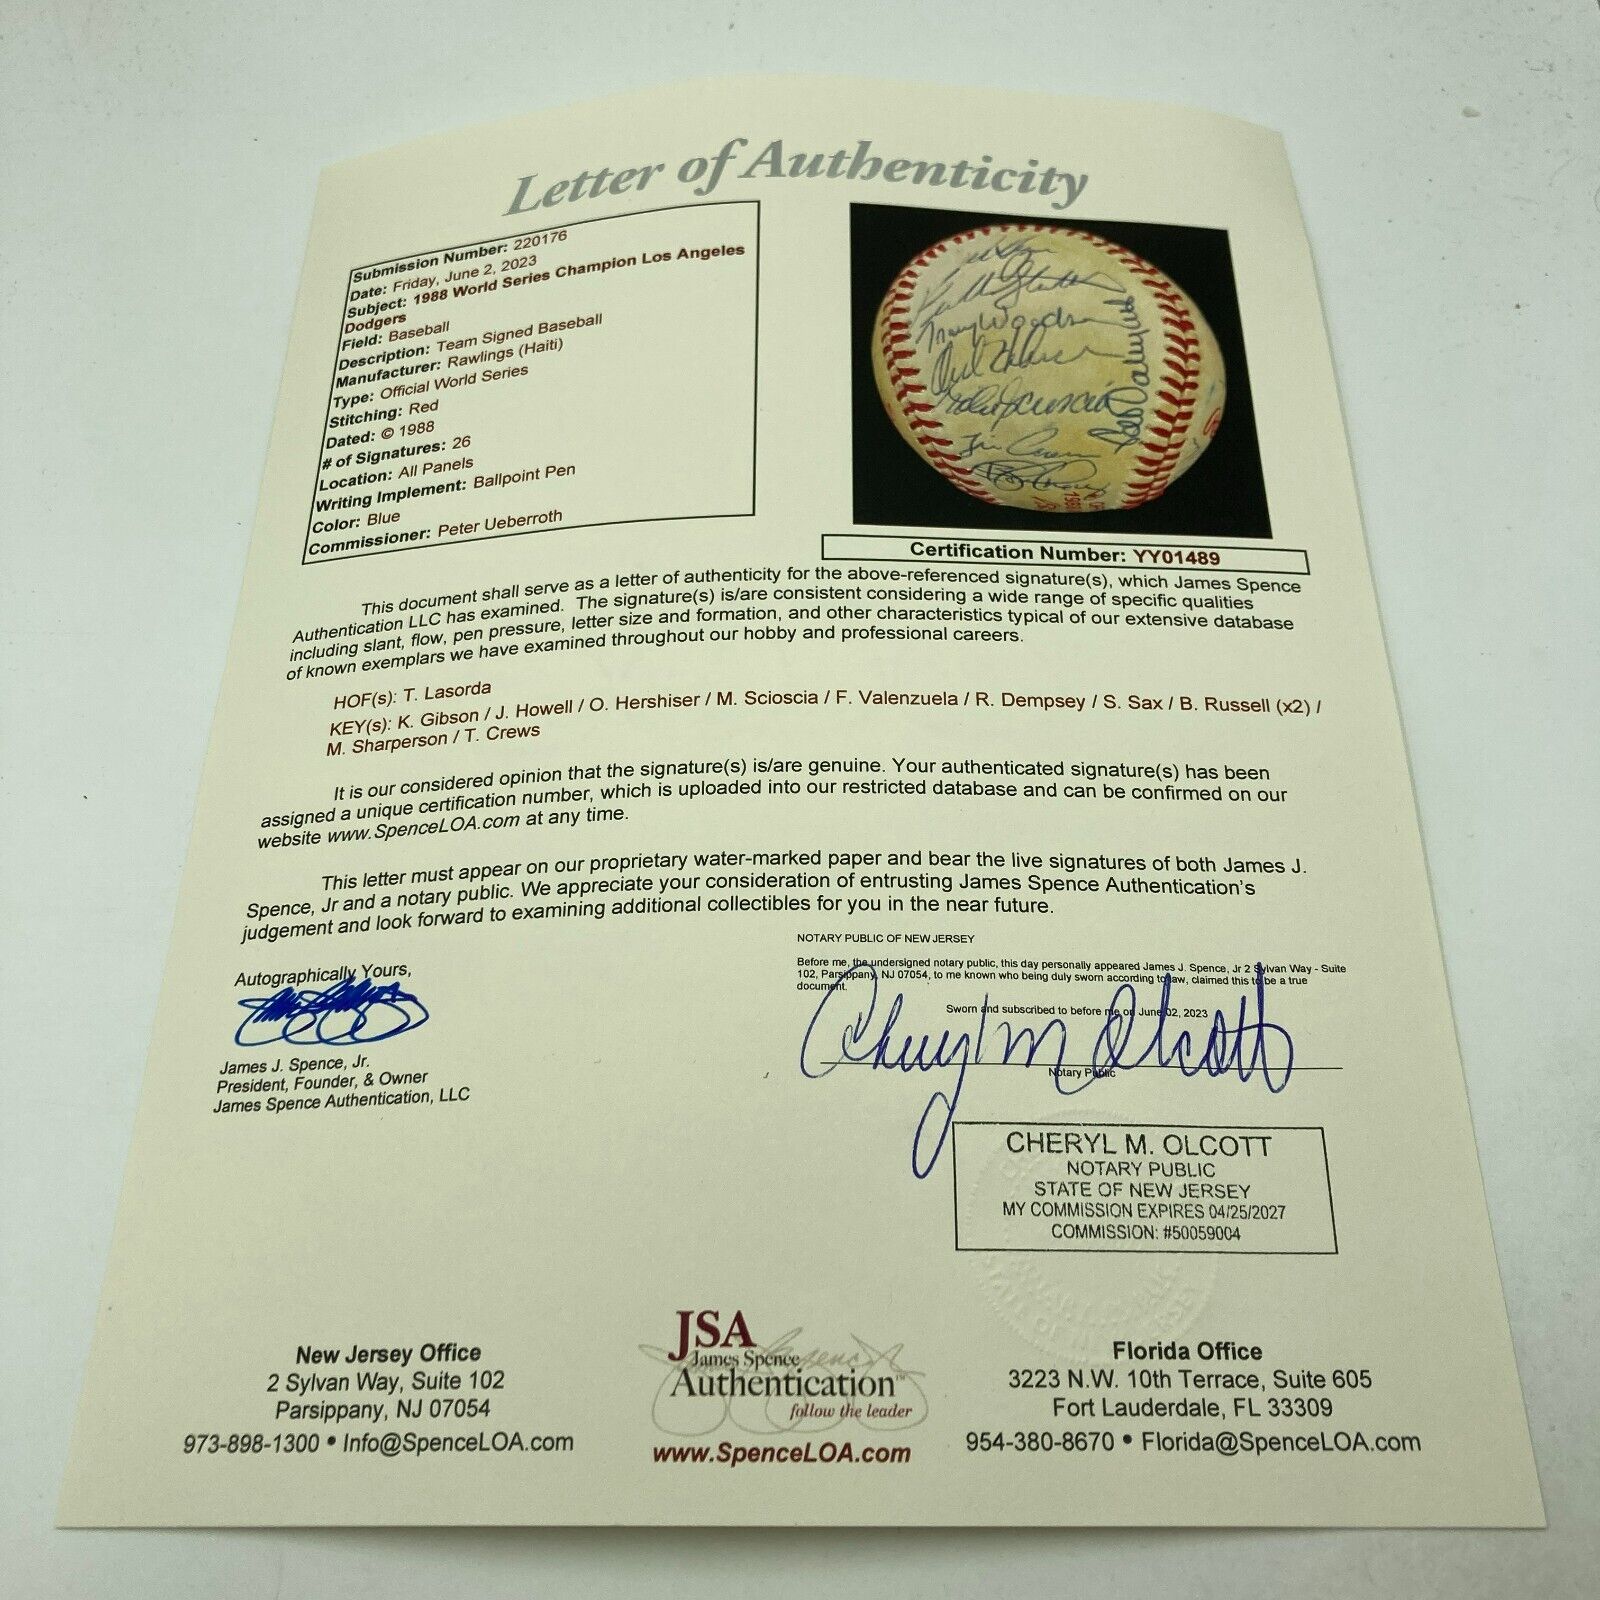 Letter of Authenticity
Submission Number: 220176
Date: Friday, June 2, 2023
Subject: 1988 World Series Champion Los Angeles
Dodgers
Field: Baseball
Description: Team Signed Baseball
Manufacturer: Rawlings (Haiti)
Type: Official World Series
Stitching: Red
Dated: © 1988
# of Signatures: 26
Location: All Panels
Writing Implement: Ballpoint Pen
Color: Blue
Commissioner: Peter Ueberroth
Tracy Woodson
Certification Number: YY01489
This document shall serve as a letter of authenticity for the above-referenced signature(s), which James Spence
Authentication LLC has examined. The signature(s) is/are consistent considering a wide range of specific qualities
including slant, flow, pen pressure, letter size and formation, and other characteristics typical of our extensive database
of known exemplars we have examined throughout our hobby and professional careers.
HOF(s): T. Lasorda
KEY(s): K. Gibson / J. Howell / O. Hershiser / M. Scioscia / F. Valenzuela / R. Dempsey / S. Sax / B. Russell (x2) /
M. Sharperson / T. Crews
It is our considered opinion that the signature(s) is/are genuine. Your authenticated signature(s) has been
assigned a unique certification number, which is uploaded into our restricted database and can be confirmed on our
website www.SpenceLOA.com at any time.
This letter must appear on our proprietary water-marked paper and bear the live signatures of both James J.
Spence, Jr and a notary public. We appreciate your consideration of entrusting James Spence Authentication's
judgement and look forward to examining additional collectibles for you in the near future.
Autographically Yours,
James J. Spence, Jr.
President, Founder, & Owner
James Spence Authentication, LLC
NOTARY PUBLIC OF NEW JERSEY
Before me, the undersigned notary public, this day personally appeared James J. Spence, Jr 2 Sylvan Way - Suite
102, Parsippany, NJ 07054, to me known who being duly sworn according to law, claimed this to be a true
document.
Sworn and subscribed to before me on June 02, 2023
Cheryl M Olcott
Notary Public
CHERYL M. OLCOTT
NOTARY PUBLIC
STATE OF NEW JERSEY
MY COMMISSION EXPIRES 04/25/2027
COMMISSION: #50059004
New Jersey Office
2 Sylvan Way, Suite 102
Parsippany, NJ 07054
973-898-1300 • Info@SpenceLOA.com
JSA
James Spence
Authentication™
follow the leader
www.SpenceLOA.com
Florida Office
3223 N.W. 10th Terrace, Suite 605
Fort Lauderdale, FL 33309
954-380-8670 • Florida@SpenceLOA.com